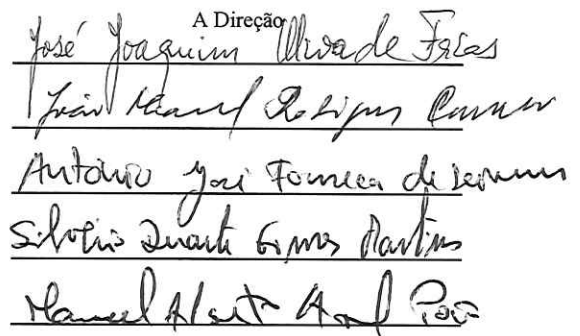 A Direção
José Joaquim Oliva de Frias
João Manuel Rodrigues
António José Fonseca de
Silvério Duarte Gomes Martins
Manuel Alberto